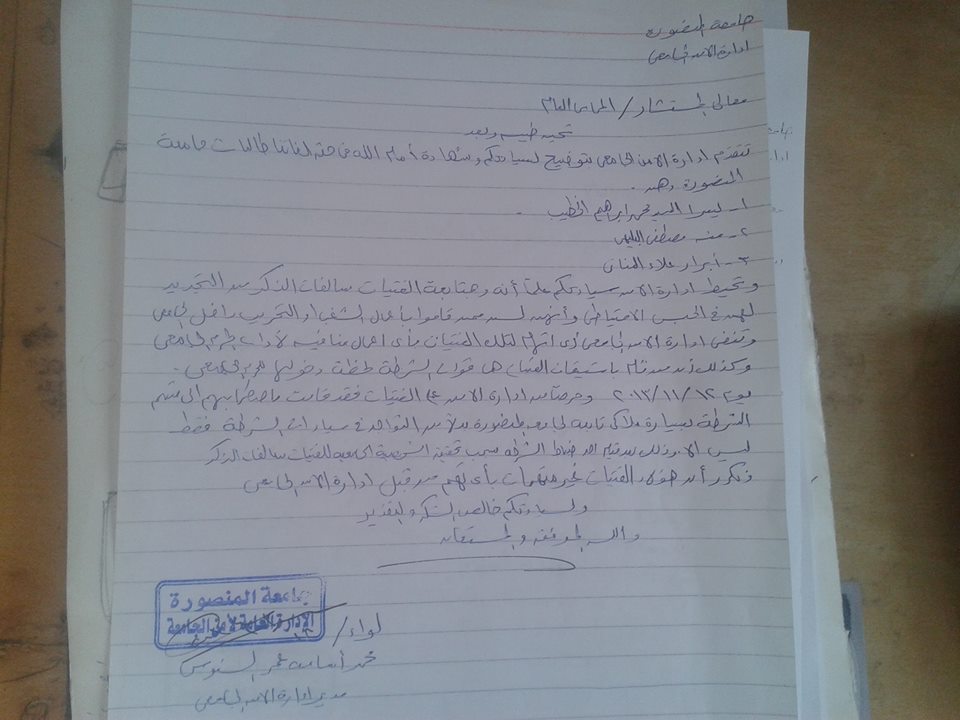 جامعة المنصورة
ادارة الامن الجامعى
معالى المستشار / المحامى العام
تحيه طيبه وبعد
تتقدم ادارة الامن الجامعى بتوضيح لسيادتكم وشهادة أمام الله فى حق بناتنا طالبات جامعة
المنصورة وهن .
١- يسرا السيد محمد ابراهيم الخطيب .
٢- منه مصطفى البليهى
٣- أبرار علاء العنانى
وتحيط ادارة الامن سيادتكم علماً أنه ومتابعة الفتيات سالفات الذكر من التجديد
لهن فى الحبس الاحتياطى وأنهن لسن ممن قاموا بأعمال الشغب او التخريب داخل الجامعى
وتنفى ادارة الامن الجامعى أى اتهام لتلك الفتيات بأى اعمال منافيه لآداب الحرم الجامعى
وكذلك أن من قام باستيقاف الفتيات هى قوات الشرطة لحظة دخولها الحرم الجامعى .
يوم ١٢ / ١١ / ٢٠١٣ وحرصاً من ادارة الامن على الفتيات فقد قامت باصطحابهم الى قسم
الشرطة بسيارة ملاكى تابعه لجامعه المنصورة بدلاً من التواجد فى سيارات الشرطة فقط
ليس الا وذلك بعد قيام احد ضباط الشرطه بسحب تحقيق الشخصية الجامعيه للفتيات سالفات الذكر
ونكرر أن هؤلاء الفتيات غير متهمات بأى تهم من قبل ادارة الامن الجامعى
ولسيادتكم خالص الشكر والتقدير
والله الموفق والمستعان
جامعة المنصورة
الإدارة العامة لأمن الجامعة
لواء /
محمد أسامه عمر السنوسى
مدير ادارة الامن الجامعى